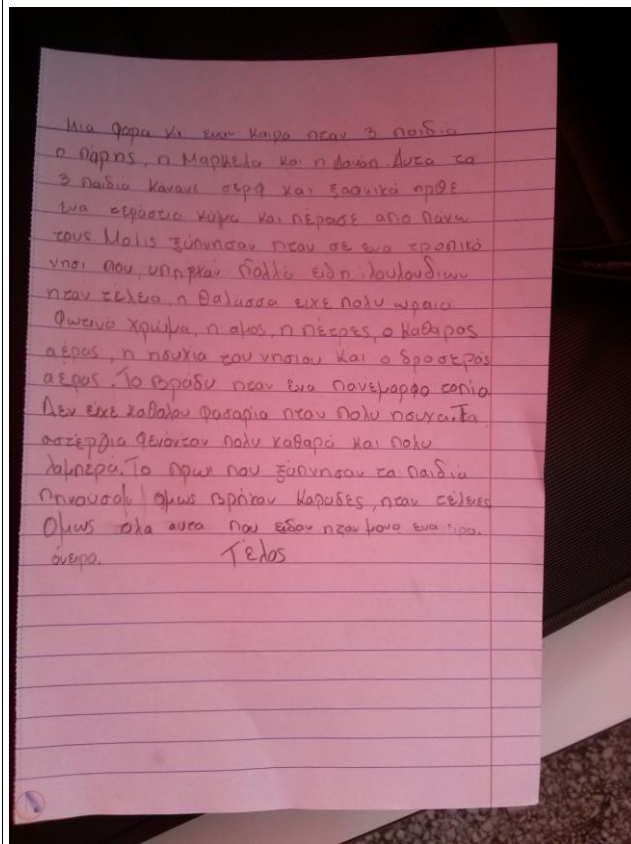 Μια φορα κι εναν καιρο ηταν 3 παιδια
ο πάρης, η Μαρκέλα και η Δανάη. Αυτα τα
3 παιδια κάνανε σερφ και ξαφνικά ηρθε
ενα τεράστιο κύμα και πέρασε απο πάνω
τους Μολις ξύπνησαν ηταν σε ενα τροπικό
νησι που υπηρχαν Πολλά ειδη λουλουδιων
ηταν τέλεια, η θαλασσα ειχε πολυ ωραιο
Φωτεινό χρώμα, η αμος, η πέτρες, ο καθαρος
αέρας, η ησυχια του νησιου και ο δροσερός
αέρας. Το βράδυ ηταν ένα πάνεμορφο τοπίο
Δεν είχε καθολου φασαρια ηταν πολυ ησυχα. Τα
αστέρθια φενόνταν πολυ καθαρά και πολυ
λαμπερά. Το πρωι που ξύπνησαν τα παιδιά
πηνουσαν όμως βρήκαν καρυδες, ηταν τέλειες
Ομως όλα αυτα που ειδαν ηταν μονο ενα
όνειρο. Τέλος